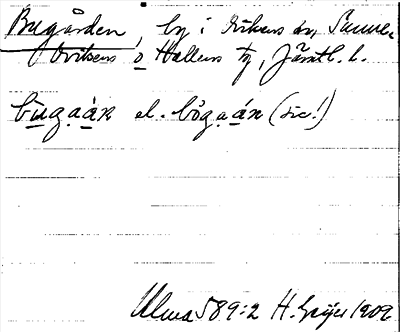 Bugården, by i Ovikens sn, Sunne,
Ovikens o Hallens tg, Jämtl. l.
bùgaán el. bôgaán (sic!)
Ulma 589:2 H. Geijer 1909